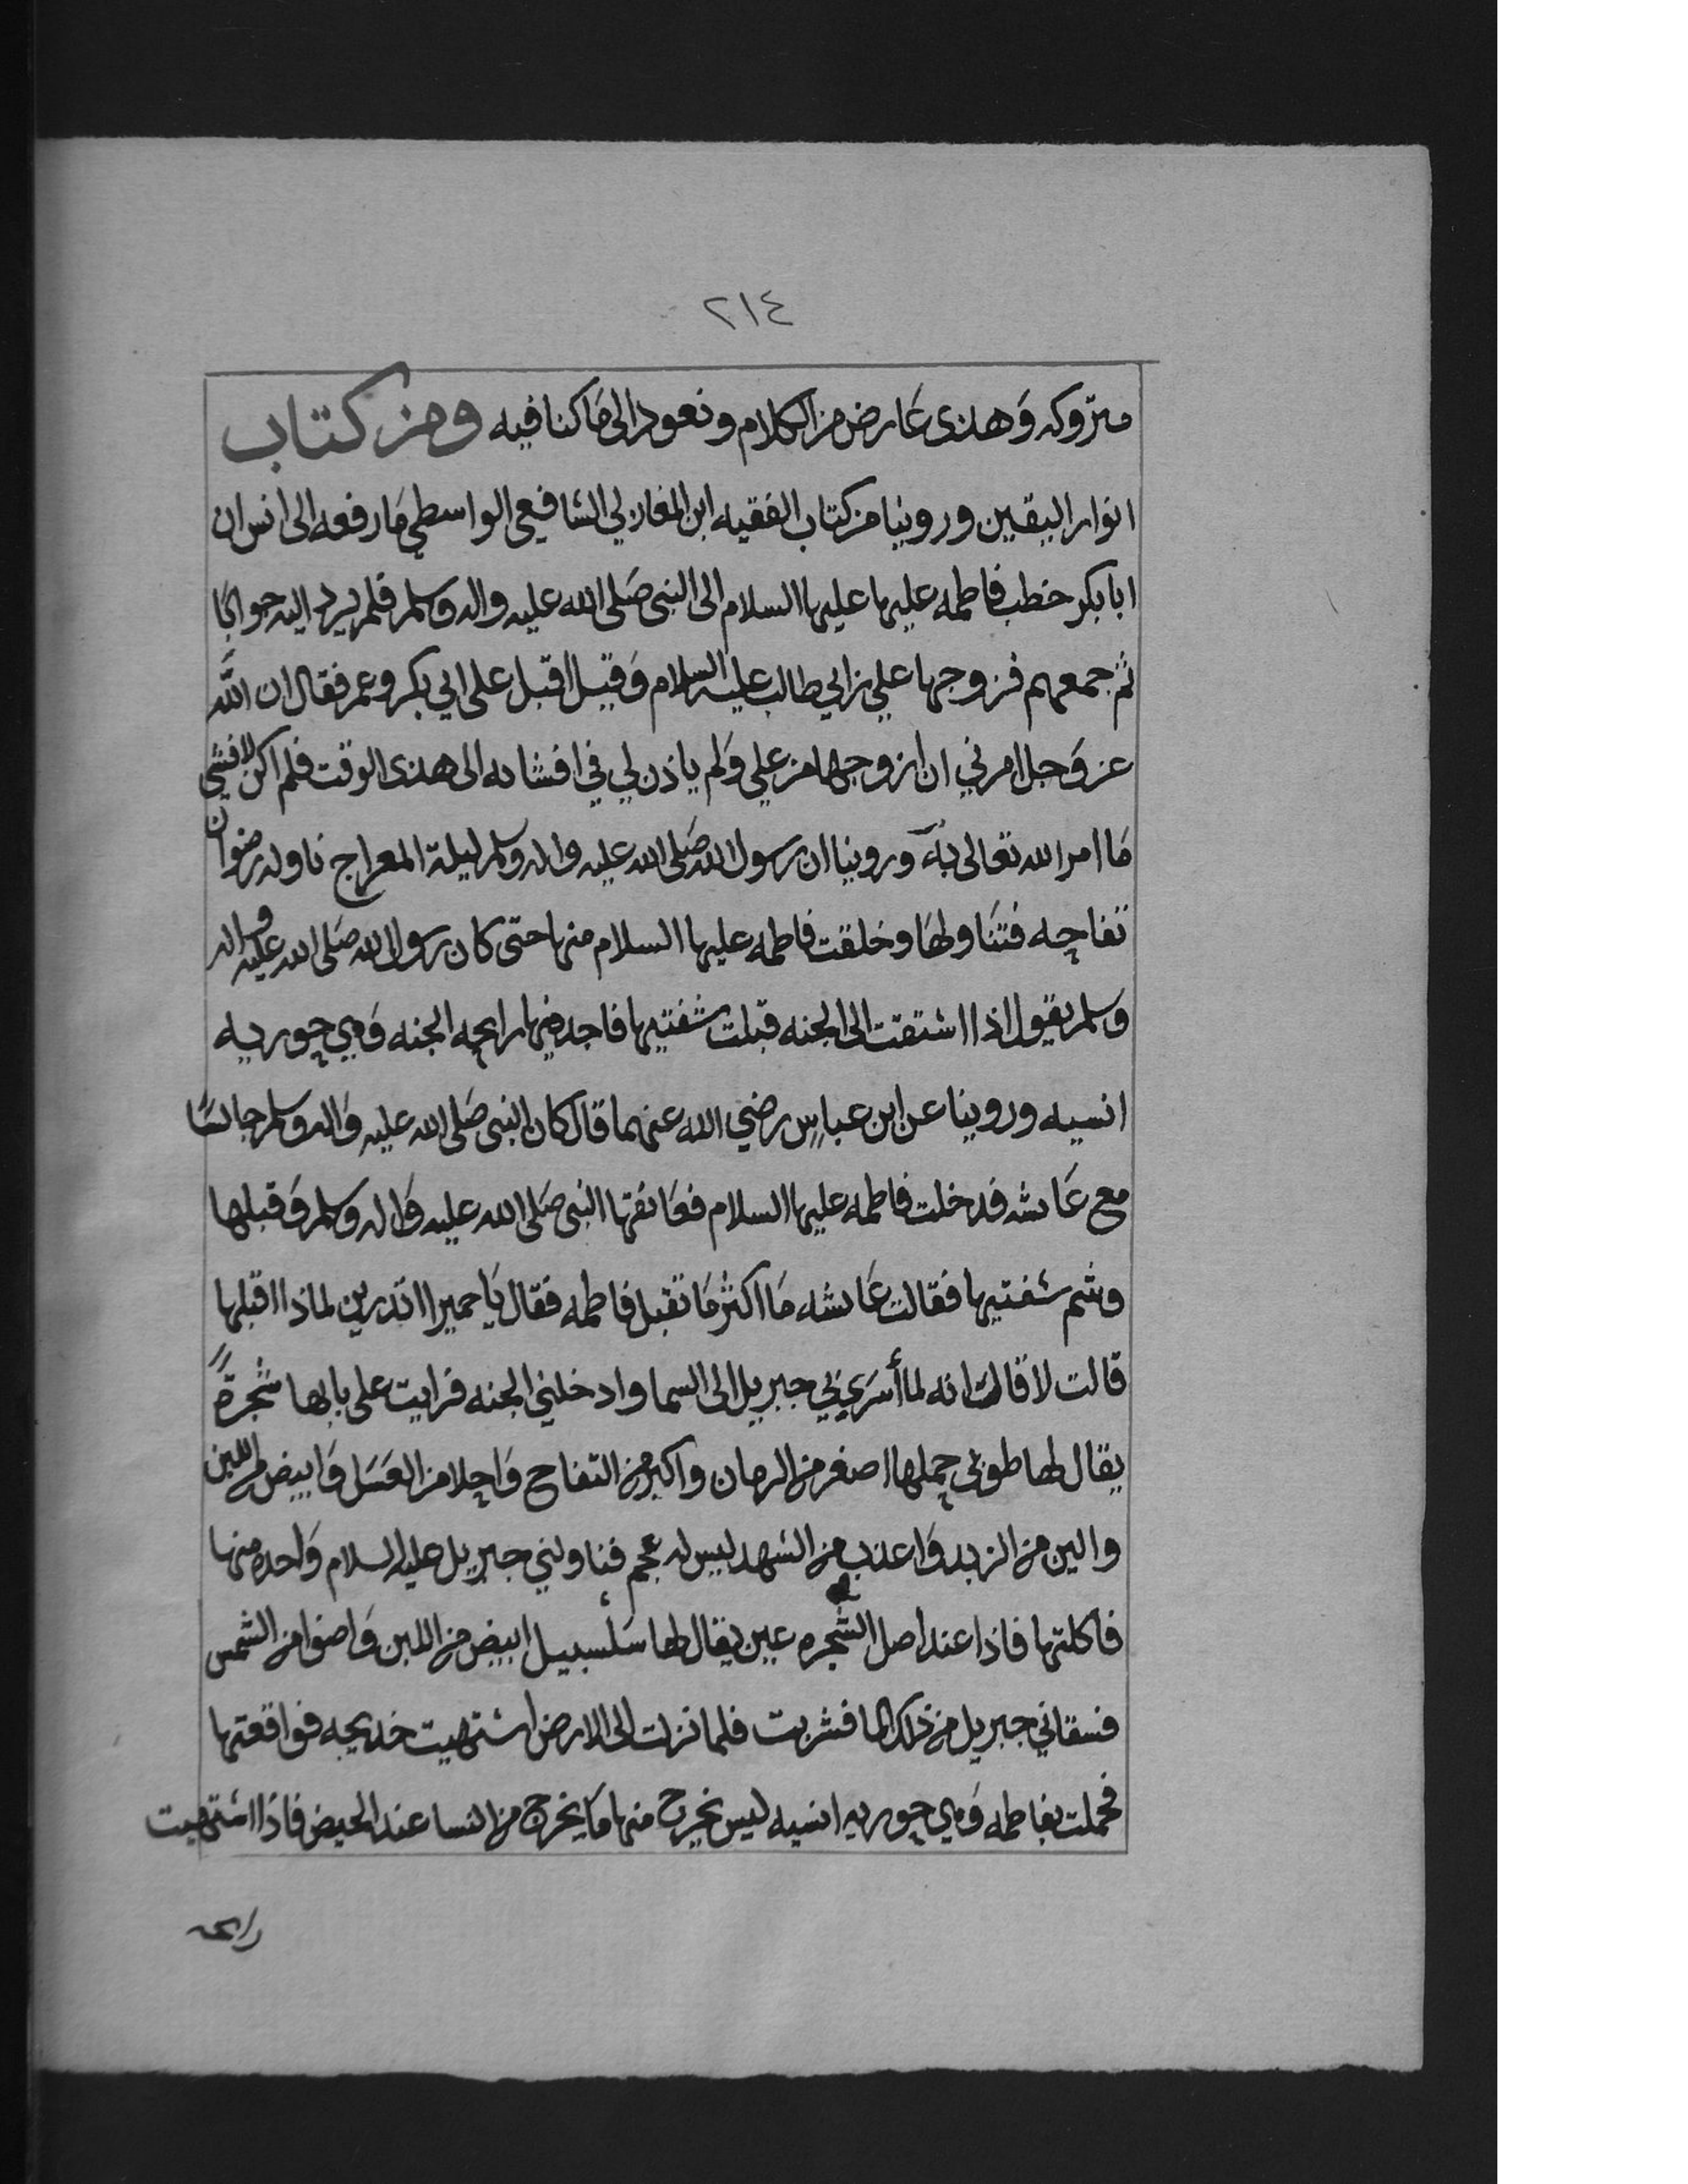 ٢١٤
متروكه وهذى عارض من الكلام ونعود الى ما كنا فيه ومن كتاب
انوار اليقين وروينا من كتاب الفقيه ابن المغازلي الشافعي الواسطي ما رفعه الى انس ان
ابا بكر خطب فاطمه عليها عليها السلام الى النبى صلى الله عليه واله وسلم فلم يرد اليه جوابا
ثم جمعهم فزوجها علي بن ابي طالب عليه السلام وقيل اقبل على ابي بكر وعمر فقال ان الله
عز وجل امرني ان ازوجها من علي ولم ياذن لي في افشائه الى هذى الوقت فلم اكن لافشي
ما امر الله تعالى به وروينا ان رسول الله صلى الله عليه واله وسلم ليلة المعراج ناوله رضوان
تفاحه فتناولها وخلقت فاطمه عليها السلام منها حتى كان رسول الله صلى الله عليه واله
وسلم يقول اذا اشتقت الى الجنه قبلت شفتيها فاجد فيها رايحه الجنه وهي حوريه
انسيه وروينا عن ابن عباس رضي الله عنهما قال كان النبى صلى الله عليه واله وسلم جالسًا
مع عايشه فدخلت فاطمه عليها السلام فعانقها النبى صلى الله عليه واله وسلم وقبلها
وشم شفتيها فقالت عايشه ما اكثر ما تقبل فاطمه فقال يا حميرا اتدرين لماذا اقبلها
قالت لا قالت انه لما أسري بي جبريل الى السما وادخلني الجنه فرايت على بابها شجرةً
يقال لها طوبى حملها اصغر من الرمان واكبر من التفاح واحلا من العسل وابيض من اللبن
والين من الزبد واعذب من الشهد ليس له عجم فناولني جبريل عليه السلام واحده منها
فاكلتها فاذا عند اصل الشجره عين يقال لها سلسبيل ابيض من اللبن واضوا من الشمس
فسقاني جبريل من ذلك الما فشربت فلما نزلت الى الارض اشتهيت خديجه فواقعتها
فحملت بفاطمه وهي حوريه انسيه ليس يخرج منها ما يخرج من النسا عند الحيض فاذا اشتهيت
رايحه